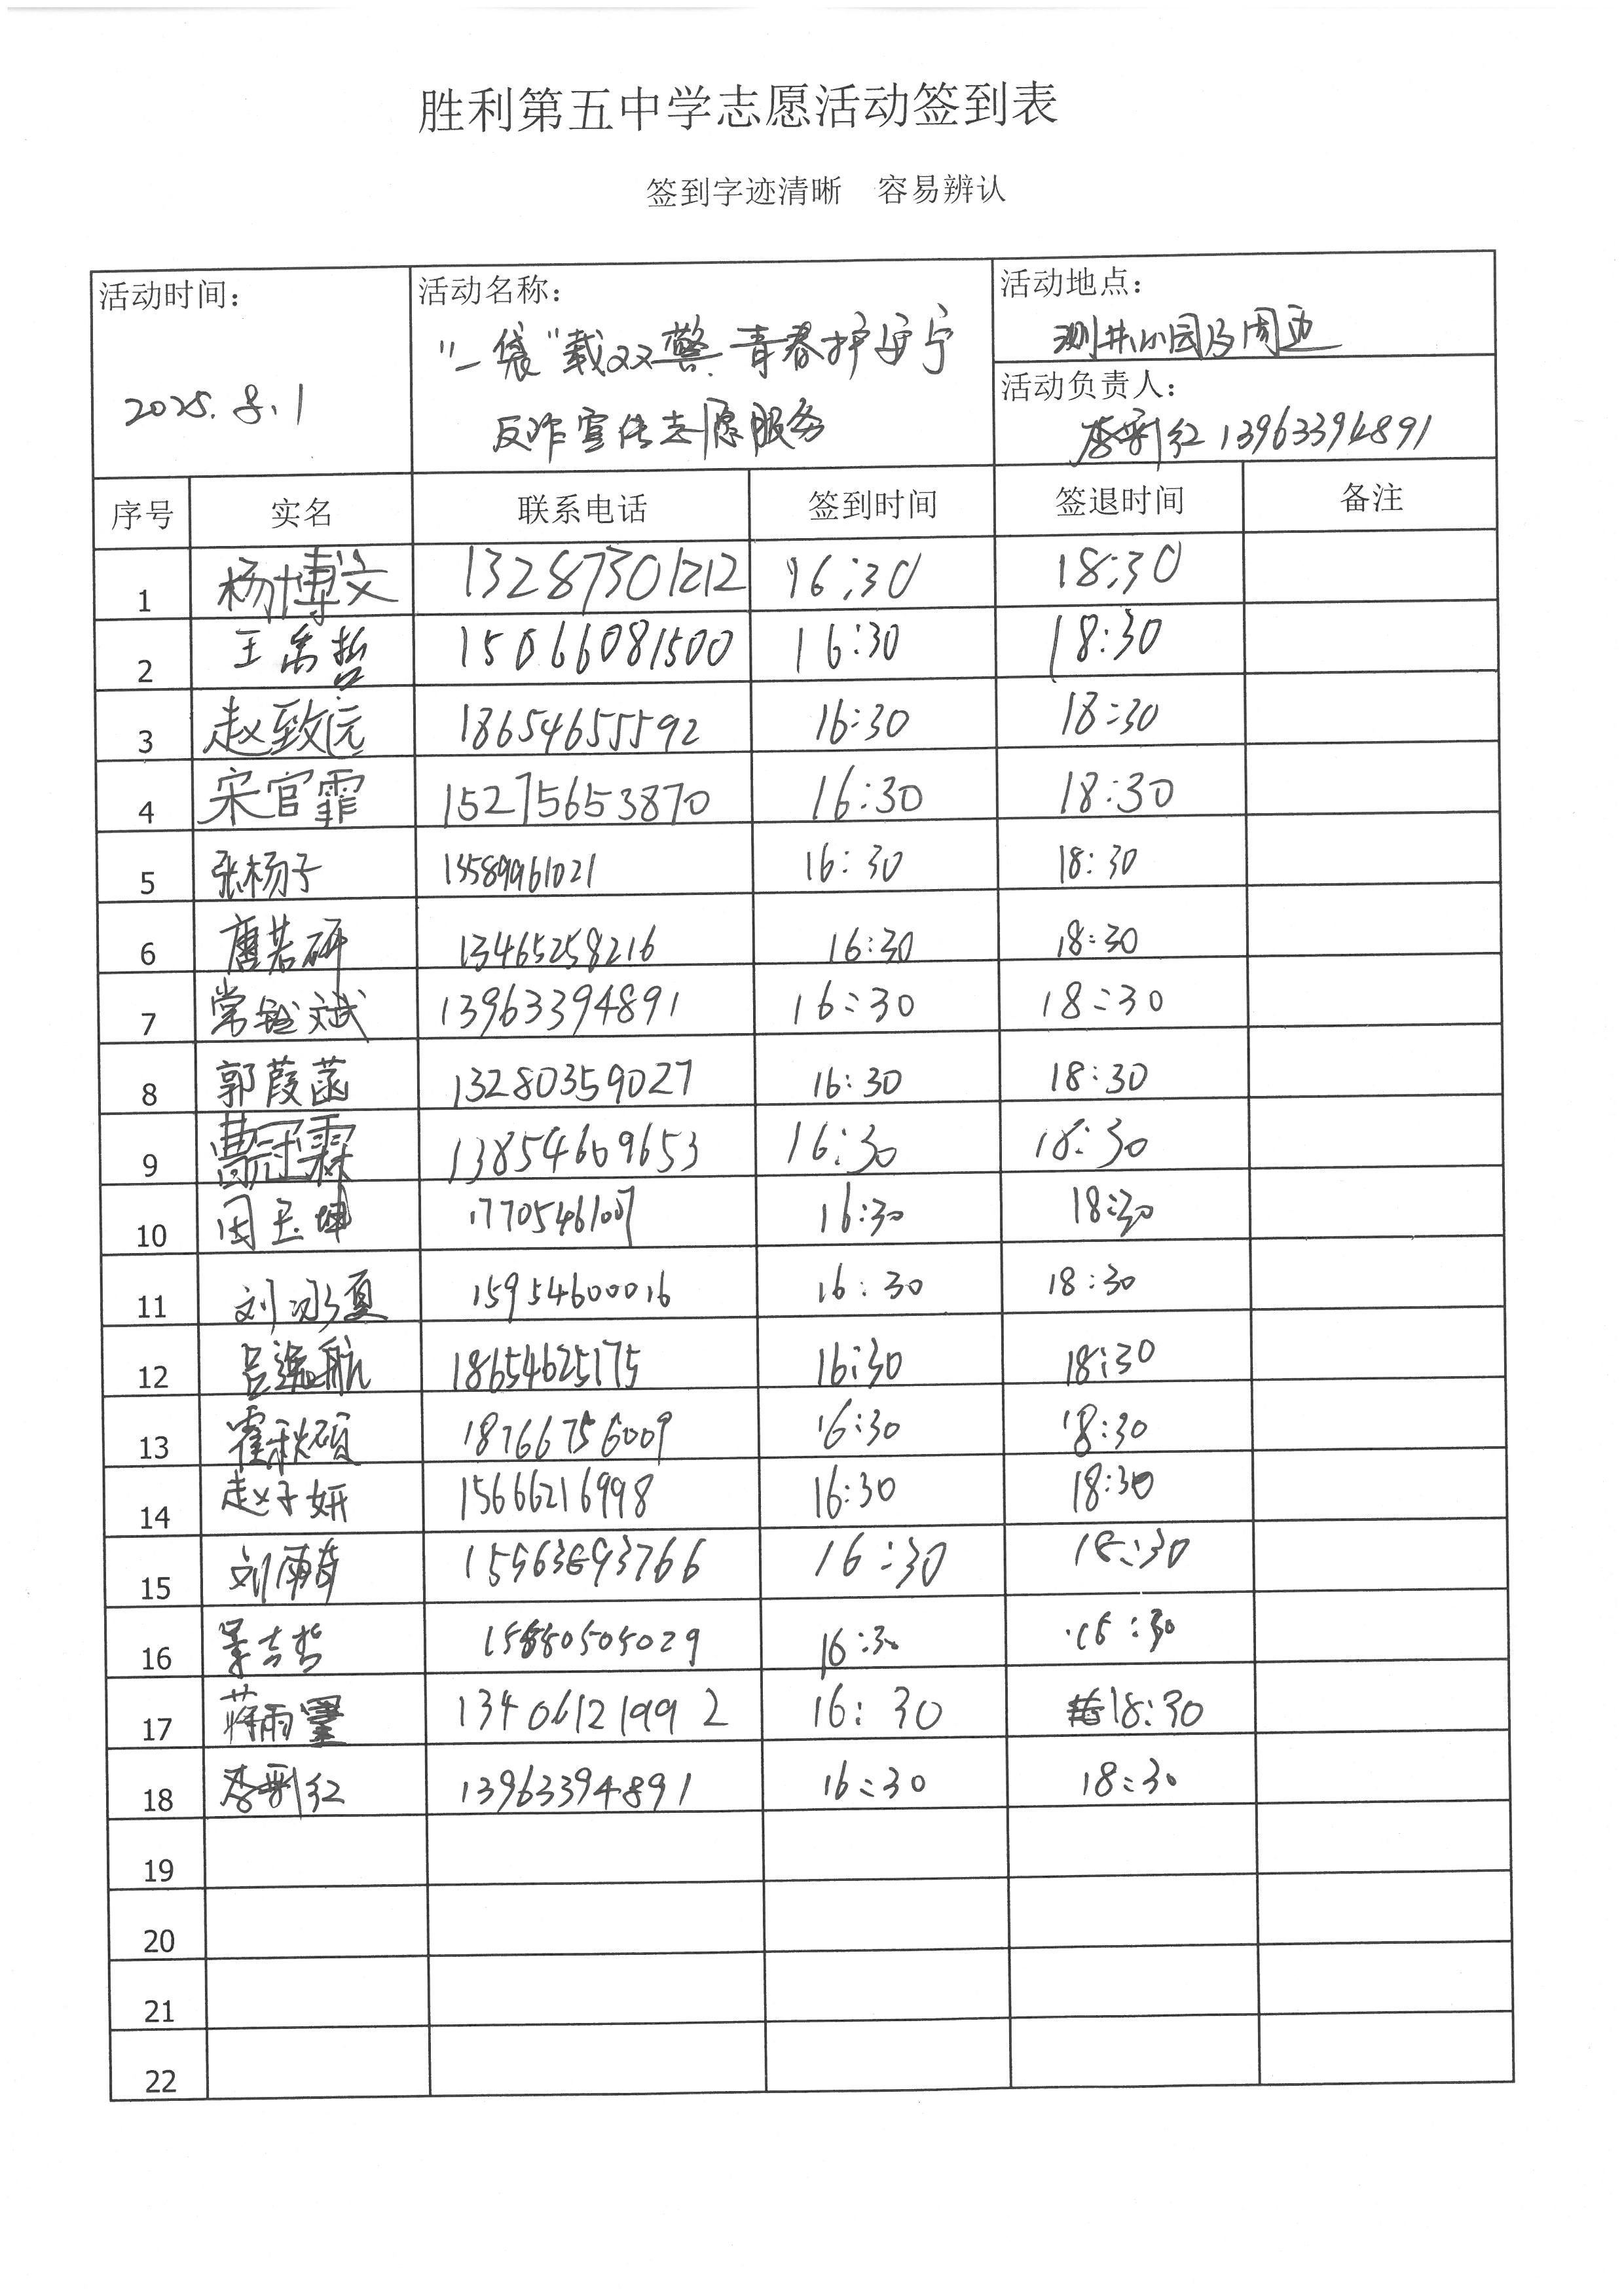 胜利第五中学志愿活动签到表
签到字迹清晰 容易辨认
活动时间： 活动名称： 活动地点：
"一袋"载双警 青春护安宁 测井小园及周边
2025.8.1 活动负责人：
反诈宣传志愿服务 李彩红 13963394891
序号 实名 联系电话 签到时间 签退时间 备注
1 杨博文 13287301212 16:30 18:30
2 王禹哲 15066081500 16:30 18:30
3 赵致远 18654655592 16:30 18:30
4 宋官霏 15275653870 16:30 18:30
5 张杨子 13589961021 16:30 18:30
6 唐若研 13465258216 16:30 18:30
7 常 斌 13963394891 16:30 18:30
8 郭葭菡 13280359027 16:30 18:30
9 曹冠霖 13854609653 16:30 18:30
10 周玉坤 16:30 18:30
11 刘冰夏 15954600016 16:30 18:30
12 吕逸航 18654625175 16:30 18:30
13 霍秋硕 18766756009 16:30 18:30
14 赵子妍 15666216998 16:30 18:30
15 刘雨 15563693766 16:30 18:30
16 哲 16:30 18:30
17 蒋雨 13406121992 16:30 18:30
18 李彩红 13963394891 16:30 18:30
19
20
21
22